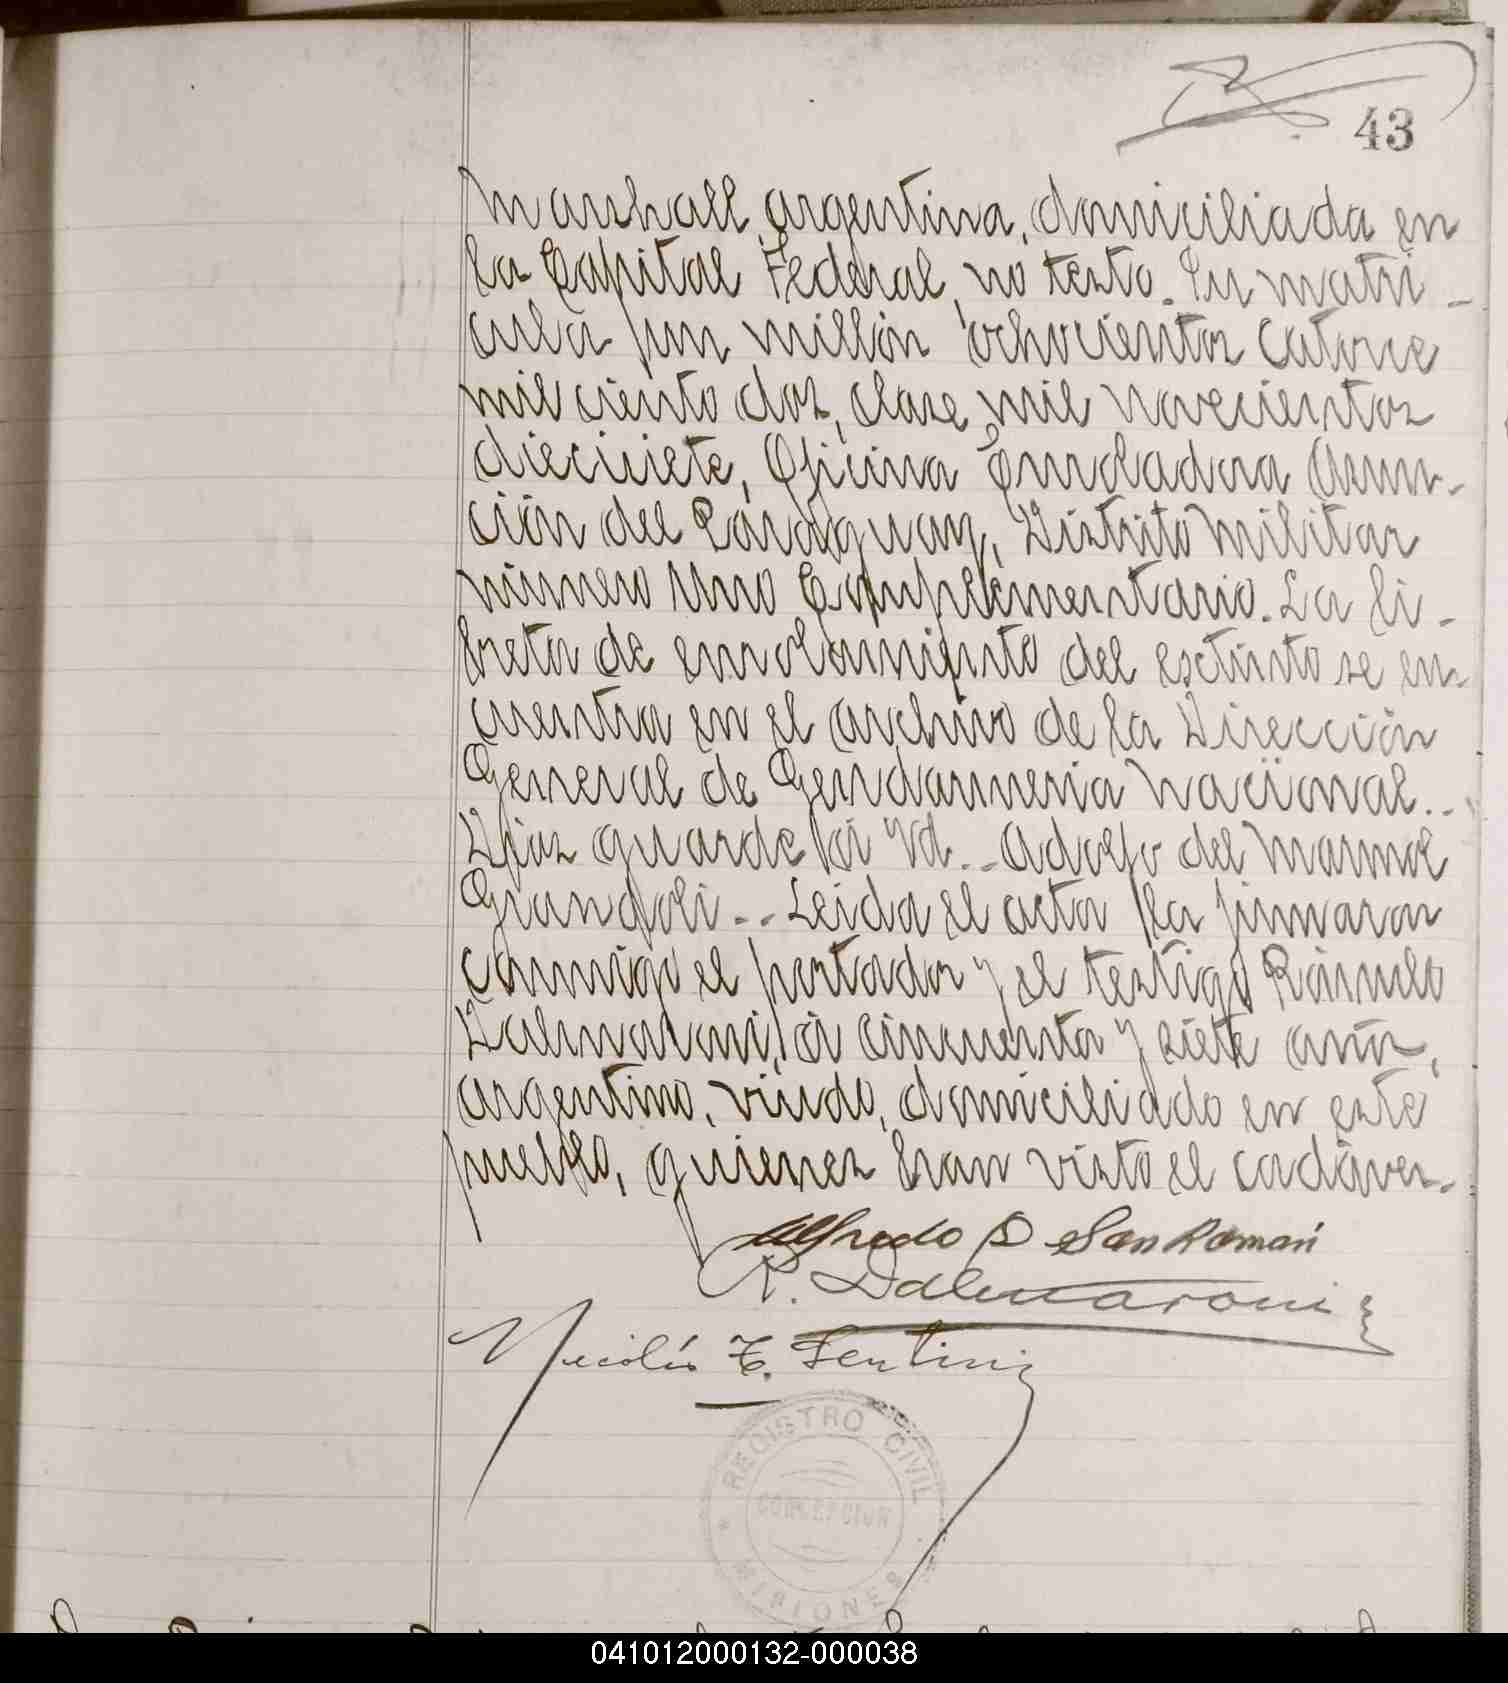 43
Marshall, argentina, domiciliada en
la Capital Federal, no testo. Su matrí-
cula un millón ochocientos catorce
mil ciento dos, clase mil novecientos
diecisiete, Oficina Enroladora Asun-
ción del Paraguay, Distrito Militar
número Uno Complementario. La li-
breta de enrolamiento del extinto se en-
cuentra en el archivo de la Dirección
General de Gendarmería Nacional..
Dios guarde a Vd.. Adolfo del Marmol
Grandoli.. Leída el acta la firmaron
conmigo el portador y el testigo Rómulo
Dalmaroni, de cincuenta y siete años,
argentino, viudo, domiciliado en este
pueblo, quienes han visto el cadáver.
Alfredo S San Román
R. Dalmaroni
Nicolás F. Sentini
REGISTRO CIVIL
CONCEPCION
MISIONES
041012000132-000038